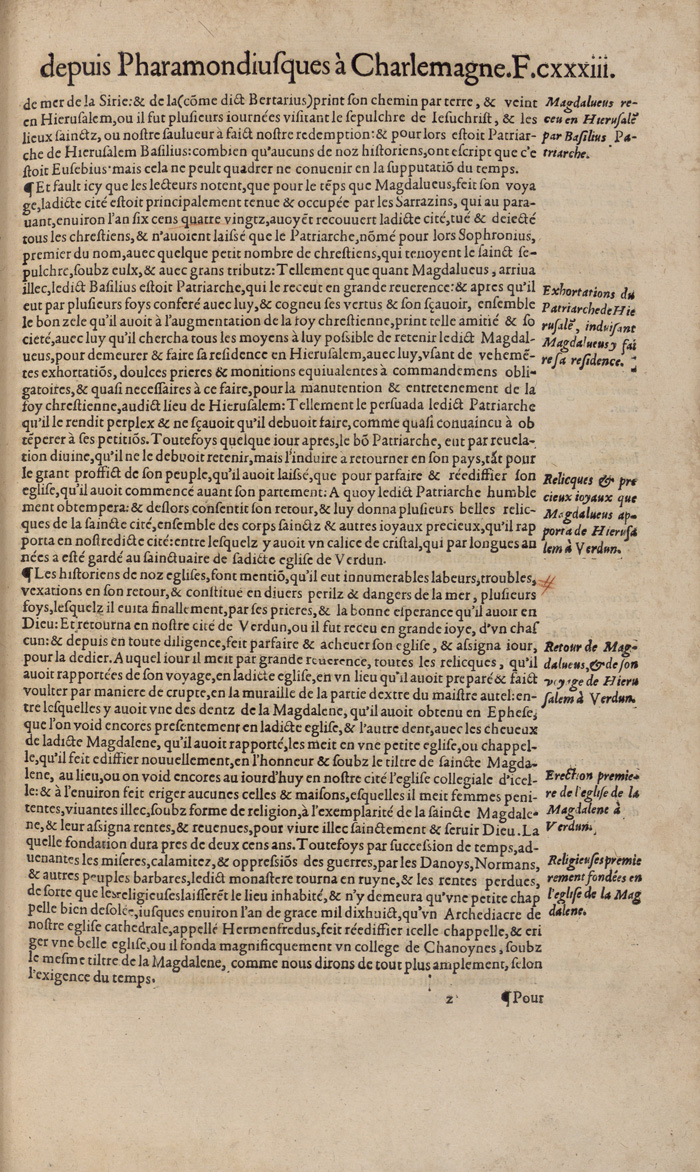 depuis Pharamondiuſques à Charlemagne.F.cxxxiii.
de mer de la Sirie:& de la(cõme dict Bertarius)print ſon chemin par terre, & veint
en Hieruſalem,ou il fut pluſieurs iournées viſitant le ſepulchre de Ieſuchriſt, & les
lieux ſainctz, ou noſtre ſaulueur à faict noſtre redemption:& pour lors eſtoit Patriar-
che de Hieruſalem Baſilius:combien qu'aucuns de noz hiſtoriens,ont eſcript que c'e
ſtoit Euſebius·mais cela ne peult quadrer ne conuenir en la ſupputatiõ du temps.
Magdalueus re-
ceu en Hieruſalẽ
par Baſilius Pa-
triarche.
¶Et fault icy que les lecteurs notent,que pour le tẽps que Magdalueus,feit ſon voya
ge,ladicte cité eſtoit principalement tenue & occupée par les Sarrazins, qui au para-
uant,enuiron l'an ſix cens quatre vingtz,auoyẽt recouuert ladicte cité,tué & deiecté
tous les chreſtiens, & n'auoient laiſſé que le Patriarche,nõmé pour lors Sophronius,
premier du nom,auec quelque petit nombre de chreſtiens,qui tenoyent le ſainct ſe-
pulchre,ſoubz eulx,& auec grans tributz:Tellement que quant Magdalueus, arriua
illec,ledict Baſilius eſtoit Patriarche,qui le receut en grande reuerence:& apres qu'il
eut par pluſieurs foys conferé auec luy,& cogneu ſes vertus & ſon ſçauoir, enſemble
le bon zele qu'il auoit à l'augmentation de la foy chreſtienne,print telle amitié & ſo
cieté,auec luy qu'il chercha tous les moyens à luy poſsible de retenir ledict Magdal-
ueus,pour demeurer & faire ſa reſidence en Hieruſalem,auec luy,vſant de vehemẽ-
tes exhortatiõs, doulces prieres & monitions equiualentes à commandemens obli-
gatoires,& quaſi neceſſaires à ce faire,pour la manutention & entretenement de la
foy chreſtienne,audict lieu de Hieruſalem:Tellement le perſuada ledict Patriarche
qu'il le rendit perplex & ne ſçauoit qu'il debuoit faire,comme quaſi conuaincu à ob
tẽperer à ſes petitiõs. Toutefoys quelque iour apres,le bõ Patriarche, eut par reuela-
tion diuine,qu'il ne le debuoit retenir,mais l'induire a retourner en ſon pays,tãt pour
le grant proffict de ſon peuple,qu'il auoit laiſſé,que pour parfaire & réedifier ſon
egliſe,qu'il auoit commencé auant ſon partement:A quoy ledict Patriarche humble
ment obtempera:& deſlors conſentit ſon retour,& luy donna pluſieurs belles relic-
ques de la ſaincte cité,enſemble des corps ſainctz & autres ioyaux precieux,qu'il rap
porta en noſtredicte cité:entre leſquelz y auoit vn calice de criſtal,qui par longues an
nées a eſté gardé au ſainctuaire de ſadicte egliſe de Verdun.
Exhortations du
PatriarchedeHie
ruſalẽ, induiſant
Magdalueus y fai
re ſa reſidence.
Relicques & pre
cieux ioyaux que
Magdalueus ap-
porta de Hieruſa
lem à Verdun.
¶Les hiſtoriens de noz egliſes,font mentiõ,qu'il eut innumerables labeurs,troubles,
vexations en ſon retour,& conſtitué en diuers perilz & dangers de la mer, pluſieurs
foys,leſquelz il euita finallement,par ſes prieres,& la bonne eſperance qu'il auoit en
Dieu:Et retourna en noſtre cité de Verdun,ou il fut receu en grande ioye, d'vn chaſ
cun:& depuis en toute diligence,feit parfaire & acheuer ſon egliſe , & aſsigna iour,
pour la dedier. Auquel iour il meit par grande reuerence, toutes les relicques, qu'il
auoit rapportées de ſon voyage,en ladicte egliſe,en vn lieu qu'il auoit preparé & faict
voulter par maniere de crupte,en la muraille de la partie dextre du maiſtre autel:en-
tre leſquelles y auoit vne des dentz de la Magdalene,qu'il auoit obtenu en Epheſe,
que l'on void encores preſentement en ladicte egliſe,& l'autre dent,auec les cheueux
de ladicte Magdalene, qu'il auoit rapporté,les meit en vne petite egliſe,ou chappel-
le,qu'il feit ediffier nouuellement,en l'honneur & ſoubz le tiltre de ſaincte Magda-
lene, au lieu,ou on void encores au iourd'huy en noſtre cité l'egliſe collegiale d'icel-
le:& à l'enuiron feit eriger aucunes celles & maiſons,eſquelles il meit femmes peni-
tentes,viuantes illec,ſoubz forme de religion,à l'exemplarité de la ſaincte Magdale-
ne,& leur aſsigna rentes,& reuenues,pour viure illec ſainctement & ſeruir Dieu.La
quelle fondation dura pres de deux cens ans.Toutefoys par ſucceſsion de temps,ad-
uenantes les miſeres,calamitez,& oppreſsiõs des guerres,par les Danoys,Normans,
& autres peuples barbares,ledict monaſtere tourna en ruyne,& les rentes perdues,
de ſorte que lesreligieuſeslaiſſerẽt le lieu inhabité,& n'y demeura qu'vne petite chap
pelle bien deſolée,iuſques enuiron l'an de grace mil dixhuict,qu'vn Archediacre de
noſtre egliſe cathedrale,appellé Hermenfredus,feit réedifier icelle chappelle,& eri
ger vne belle egliſe,ou il fonda magnificquement vn college de Chanoynes, ſoubz
le meſme tiltre de la Magdalene, comme nous dirons de tout plus amplement,ſelon
l'exigence du temps.
Retour de Mag-
dalueus,& de ſon
voyage de Hieru
ſalem à Verdun.
Erection premie-
re de l'egliſe de la
Magdalene à
Verdun.
Religieuſes premie
rement fondées en
l'egliſe de la Mag
dalene.
z ¶Pour